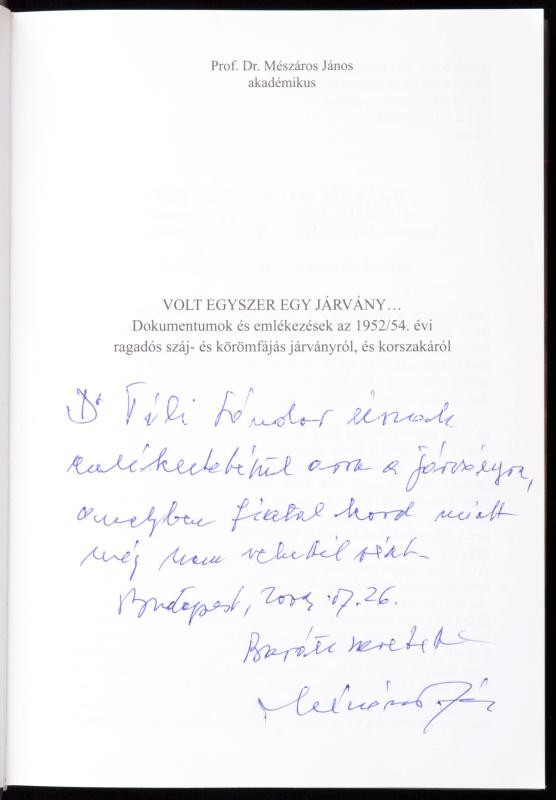 Prof. Dr. Mészáros János
akadémikus
VOLT EGYSZER EGY JÁRVÁNY…
Dokumentumok és emlékezések az 1952/54. évi
ragadós száj- és körömfájás járványról, és korszakáról
Dr Táli Sándor úrnak
emlékeztetőül arra a járványra,
amelyben fiatal korod miatt
még nem vehettél részt.
Budapest, 2009. 07. 26.
Baráti szeretettel
Mészáros János